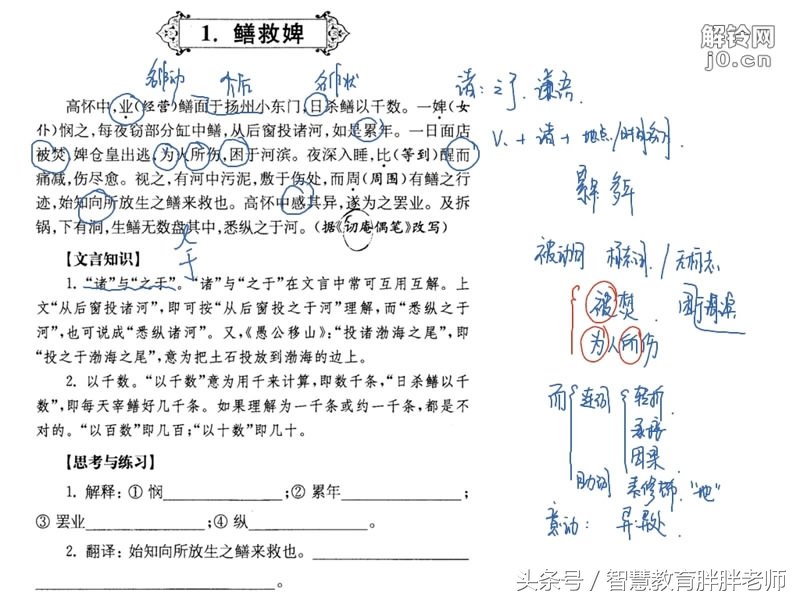 1. 鳝救婢
解铃网
j0.cn
名作动
介后
名作状
高怀中,业(经营)鳝面于扬州小东门,日杀鳝以千数。一婢(女
仆)悯之,每夜窃部分缸中鳝,从后窗投诸河,如是累年。一日面店
被焚,婢仓皇出逃,为人所伤,困于河滨。夜深入睡,比(等到)醒而
痛减,伤尽愈。视之,有河中污泥,敷于伤处,而周(周围)有鳝之行
迹,始知向所放生之鳝来救也。高怀中感其异,遂为之罢业。及拆
锅,下有洞,生鳝无数盘其中,悉纵之于河。(据《切庵偶笔》改写)
【文言知识】
之于
1. “诸”与“之于”。“诸”与“之于”在文言中常可互用互解。上
文“从后窗投诸河”,即可按“从后窗投之于河”理解,而“悉纵之于
河”,也可说成“悉纵诸河”。又,《愚公移山》:“投诸渤海之尾”,即
“投之于渤海之尾”,意为把土石投放到渤海的边上。
2. 以千数。“以千数”意为用千来计算,即数千条,“日杀鳝以千
数”,即每天宰鳝好几千条。如果理解为一千条或约一千条,都是不
对的。“以百数”即几百;“以十数”即几十。
【思考与练习】
1. 解释:① 悯____________;② 累年____________;
③ 罢业____________;④ 纵____________。
2. 翻译:始知向所放生之鳝来救也。____________
____________。
诸:之于
V. + 诸 + 地点/时间名词.
累年 多年
被动句 标志词 / 无标志
被焚
为人所伤
而 连词 转折
承接
因果
助词 表修饰 “地”
意动:
头条号 / 智慧教育胖胖老师